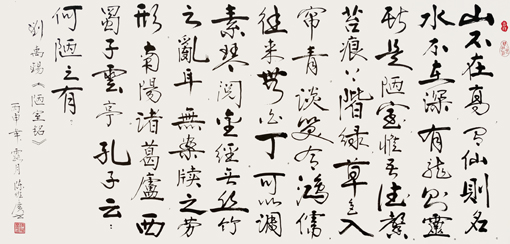 山不在高有仙則名
水不在深有龍則靈
斯是陋室惟吾德馨
苔痕上階緑草色入
簾青談笑有鴻儒
往來無白丁可以調
素琴閱金經無絲竹
之亂耳無案牘之勞
形南陽諸葛廬西
蜀子雲亭孔子云：
何陋之有
劉禹錫《陋室銘》
丙申年露月陳